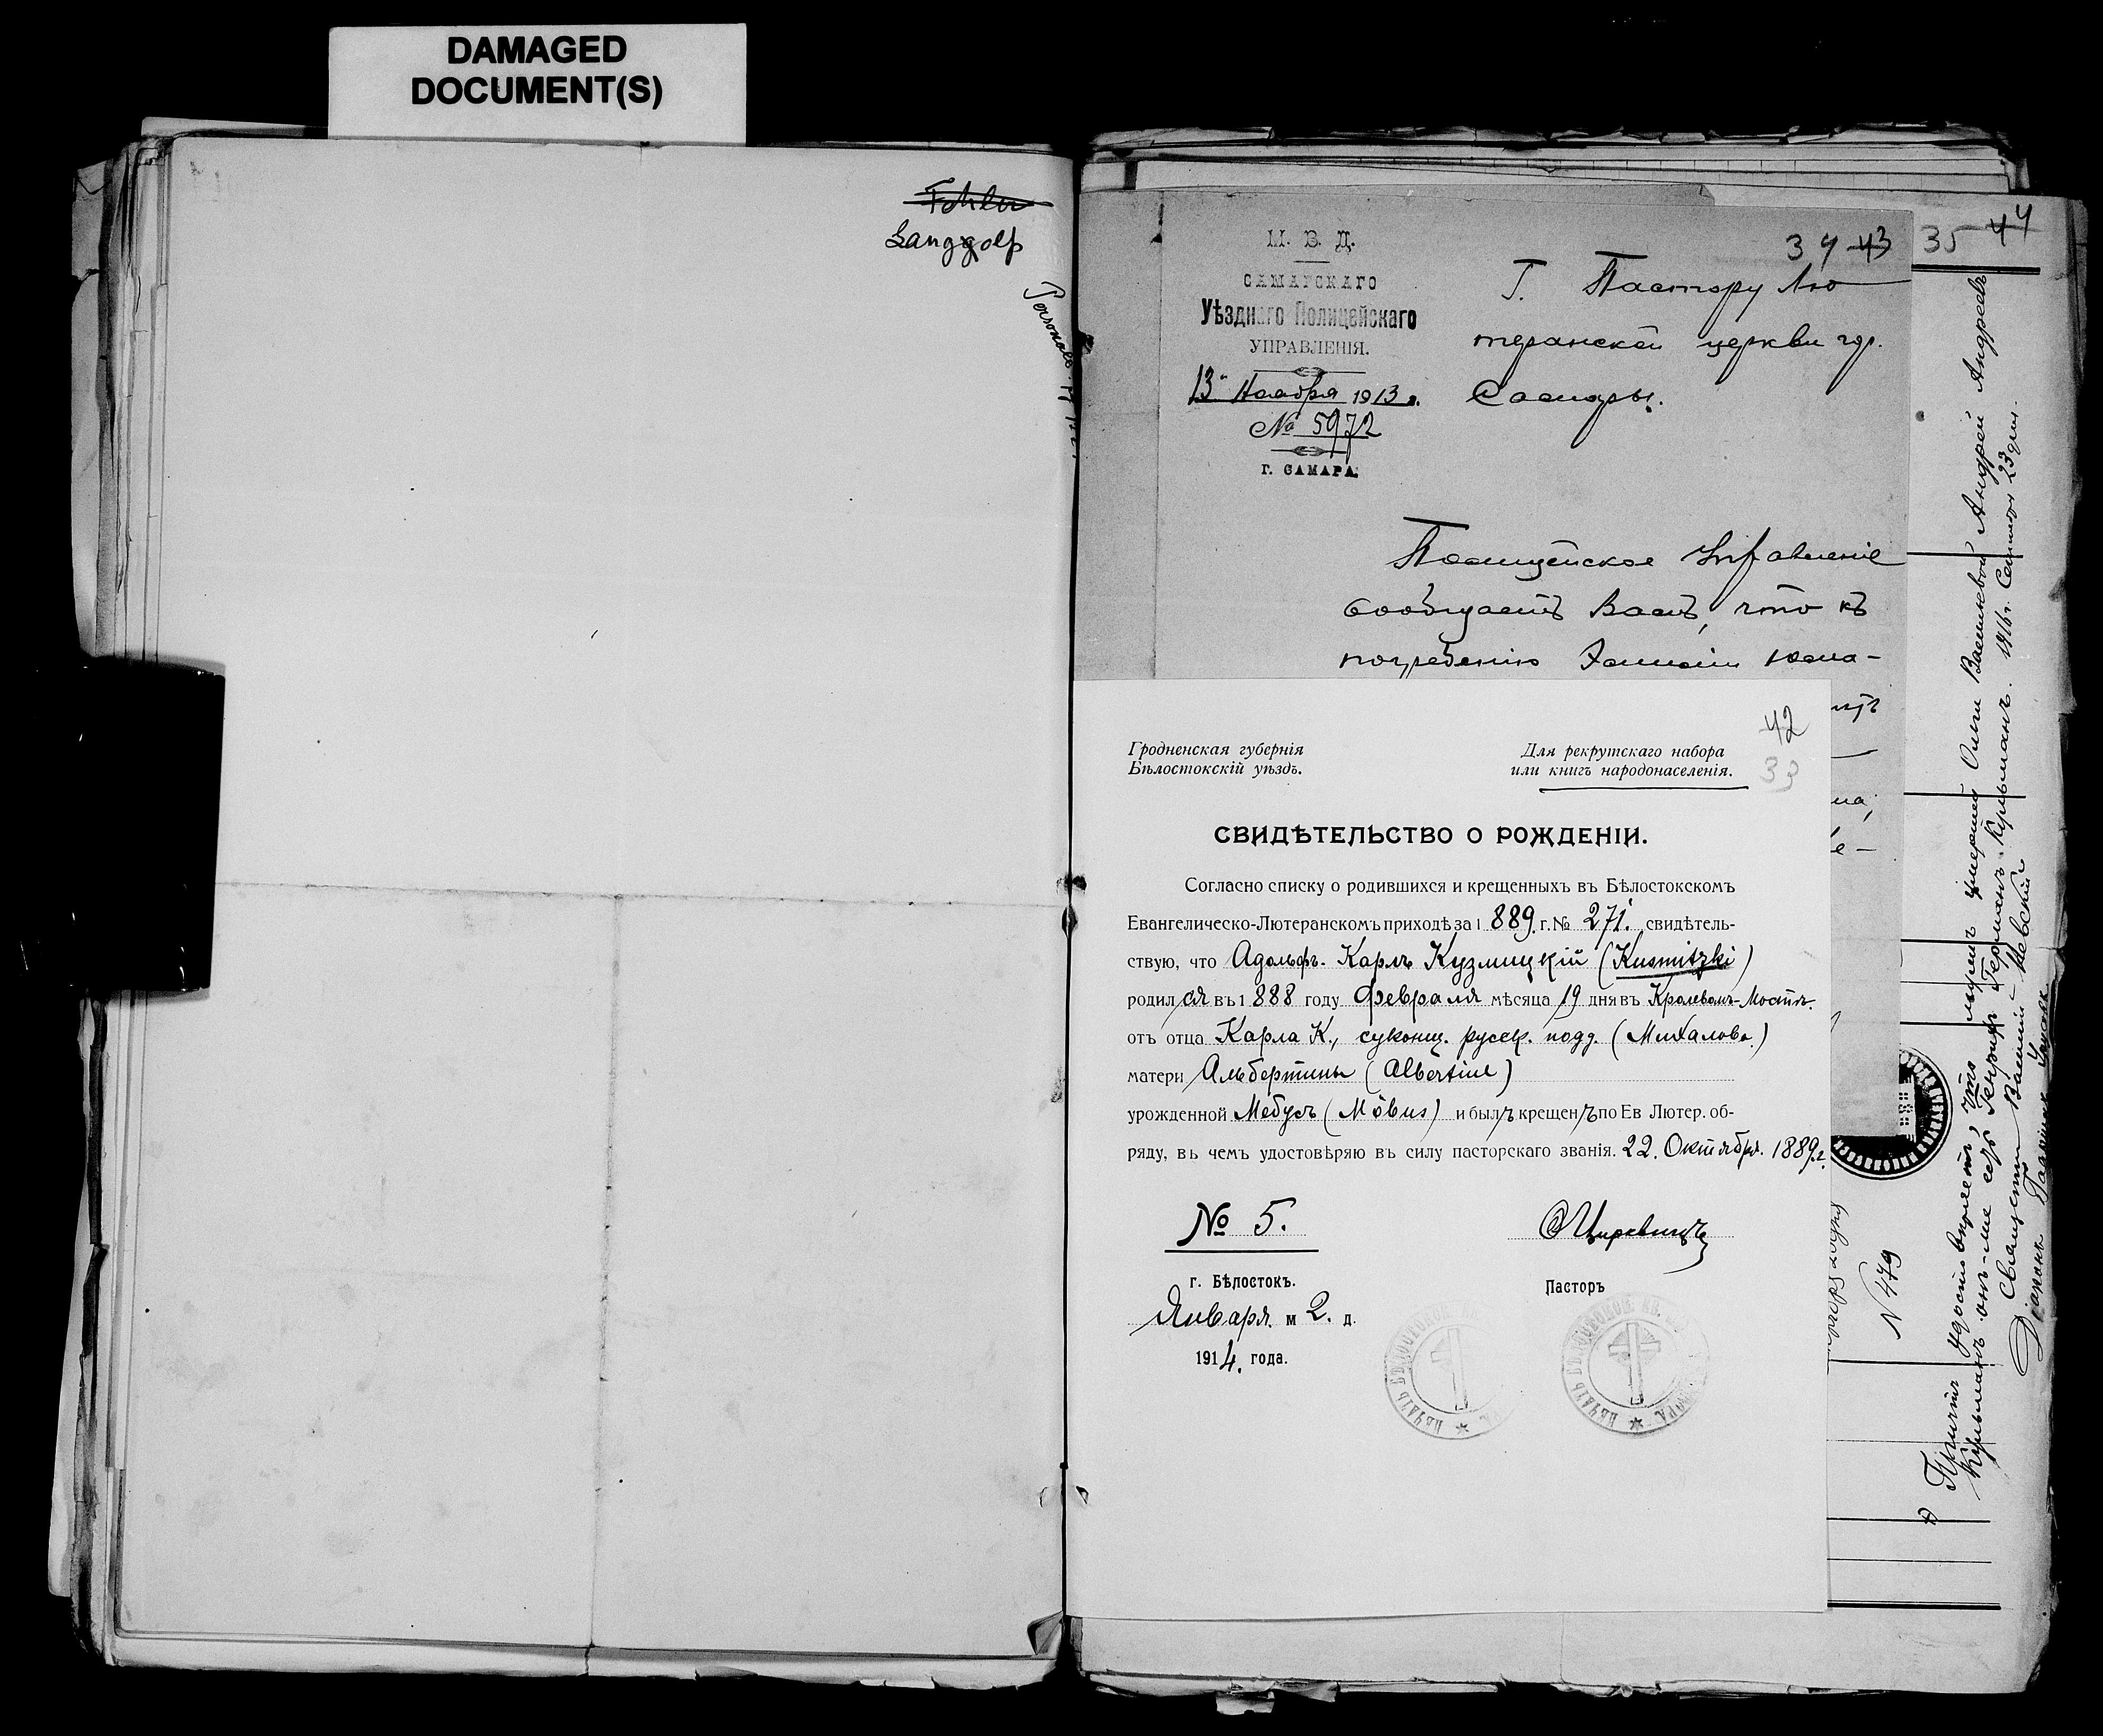 DAMAGED
DOCUMENT(S)
Fehler
Langgolf
Personal
34 43
35 44
М. В. Д.
САМАРСКАГО
Уѣзднаго Полицейскаго
УПРАВЛЕНІЯ.
13 Ноября 1913 г.
№ 5972
Г. САМАРА.
Г. Пастору Лю
теранской церкви гор.
Самары.
Полицейское Управленіе
сообщаетъ Вамъ, что къ
погребенію
42
33
Гродненская губернія
Бѣлостокскій уѣздъ.
Для рекрутскаго набора
или книгъ народонаселенія.
СВИДѢТЕЛЬСТВО О РОЖДЕНІИ.
Согласно списку о родившихся и крещенныхъ въ Бѣлостокскомъ
Евангелическо-Лютеранскомъ приходѣ за 1889 г. № 271. свидѣтель-
ствую, что Адольфъ-Карлъ Кузмицкій (Kusmitzki)
родился въ 1888 году Февраля мѣсяца 19 дня въ Кролевомъ-Мостѣ.
отъ отца Карла К., суконщ. русск. подд. (Михалово)
матери Альбертины (Albertine)
урожденной Мебусъ (Möbus) и былъ крещенъ по Ев Лютер. об-
ряду, въ чемъ удостовѣряю въ силу пасторскаго званія. 22. Октября. 1889 г.
№ 5.
г. Бѣлостокъ.
Января м 2. д.
1914. года.
Пасторъ
ПЕЧАТЬ БѢЛОСТОКСК.
ПЕЧАТЬ БѢЛОСТОКСК.
N 479
Причтъ удостовѣряетъ, что мужъ умершей Ольги Васильевой Андрей Андреевъ
Кульманъ онъ-же есть Генрихъ Германъ Кульманъ. 1916 г. Сентября 23 дня.
Священникъ Василій Невскій
Діаконъ